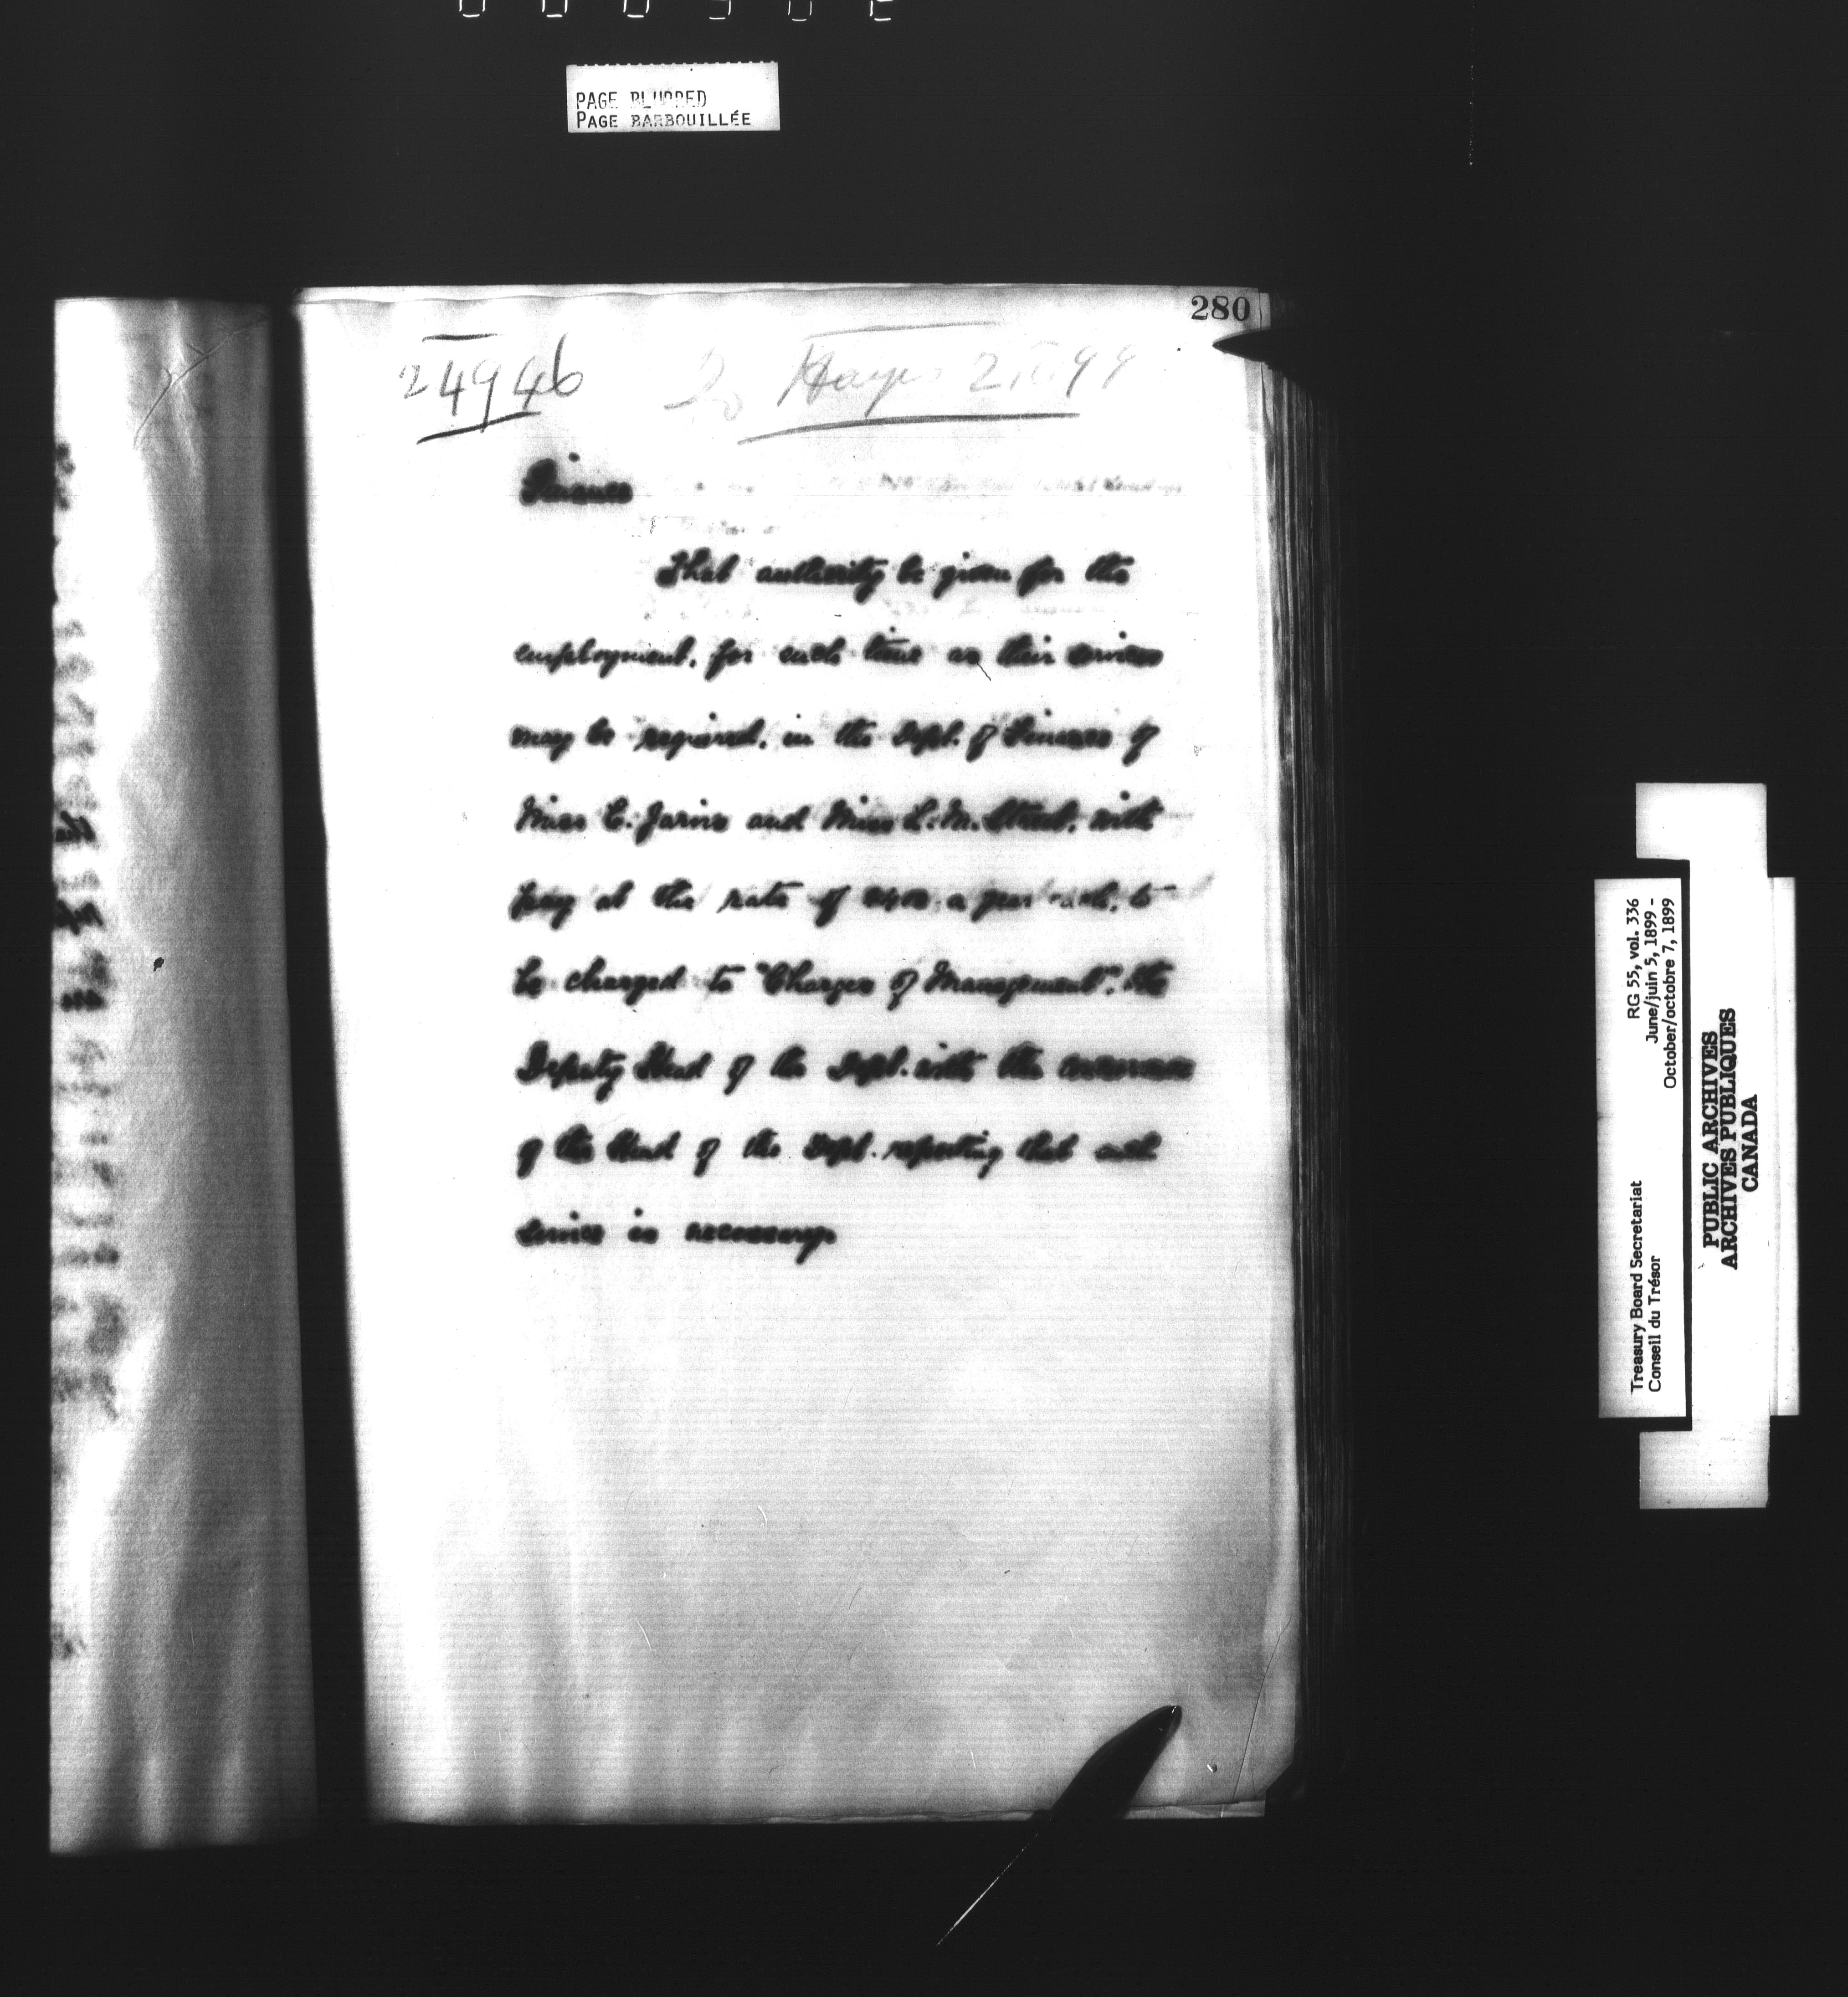 PAGE BLURRED
PAGE BARBOUILLÉE
280
24946
Finance
That authority be given for the
employment, for such time as their services
may be required, in the Dept. of Finance of
Miss E. Jarvis and Miss L. M. Street, with
pay at the rate of a year each, to
be charged to "Charges of Management", the
Deputy Head of the Dept. with the concurrence
of the Head of the Dept. reporting that such
service is necessary.
RG 55, vol. 336
June/juin 5, 1899 -
October/octobre 7, 1899
Treasury Board Secretariat
Conseil du Trésor
PUBLIC ARCHIVES
ARCHIVES PUBLIQUES
CANADA